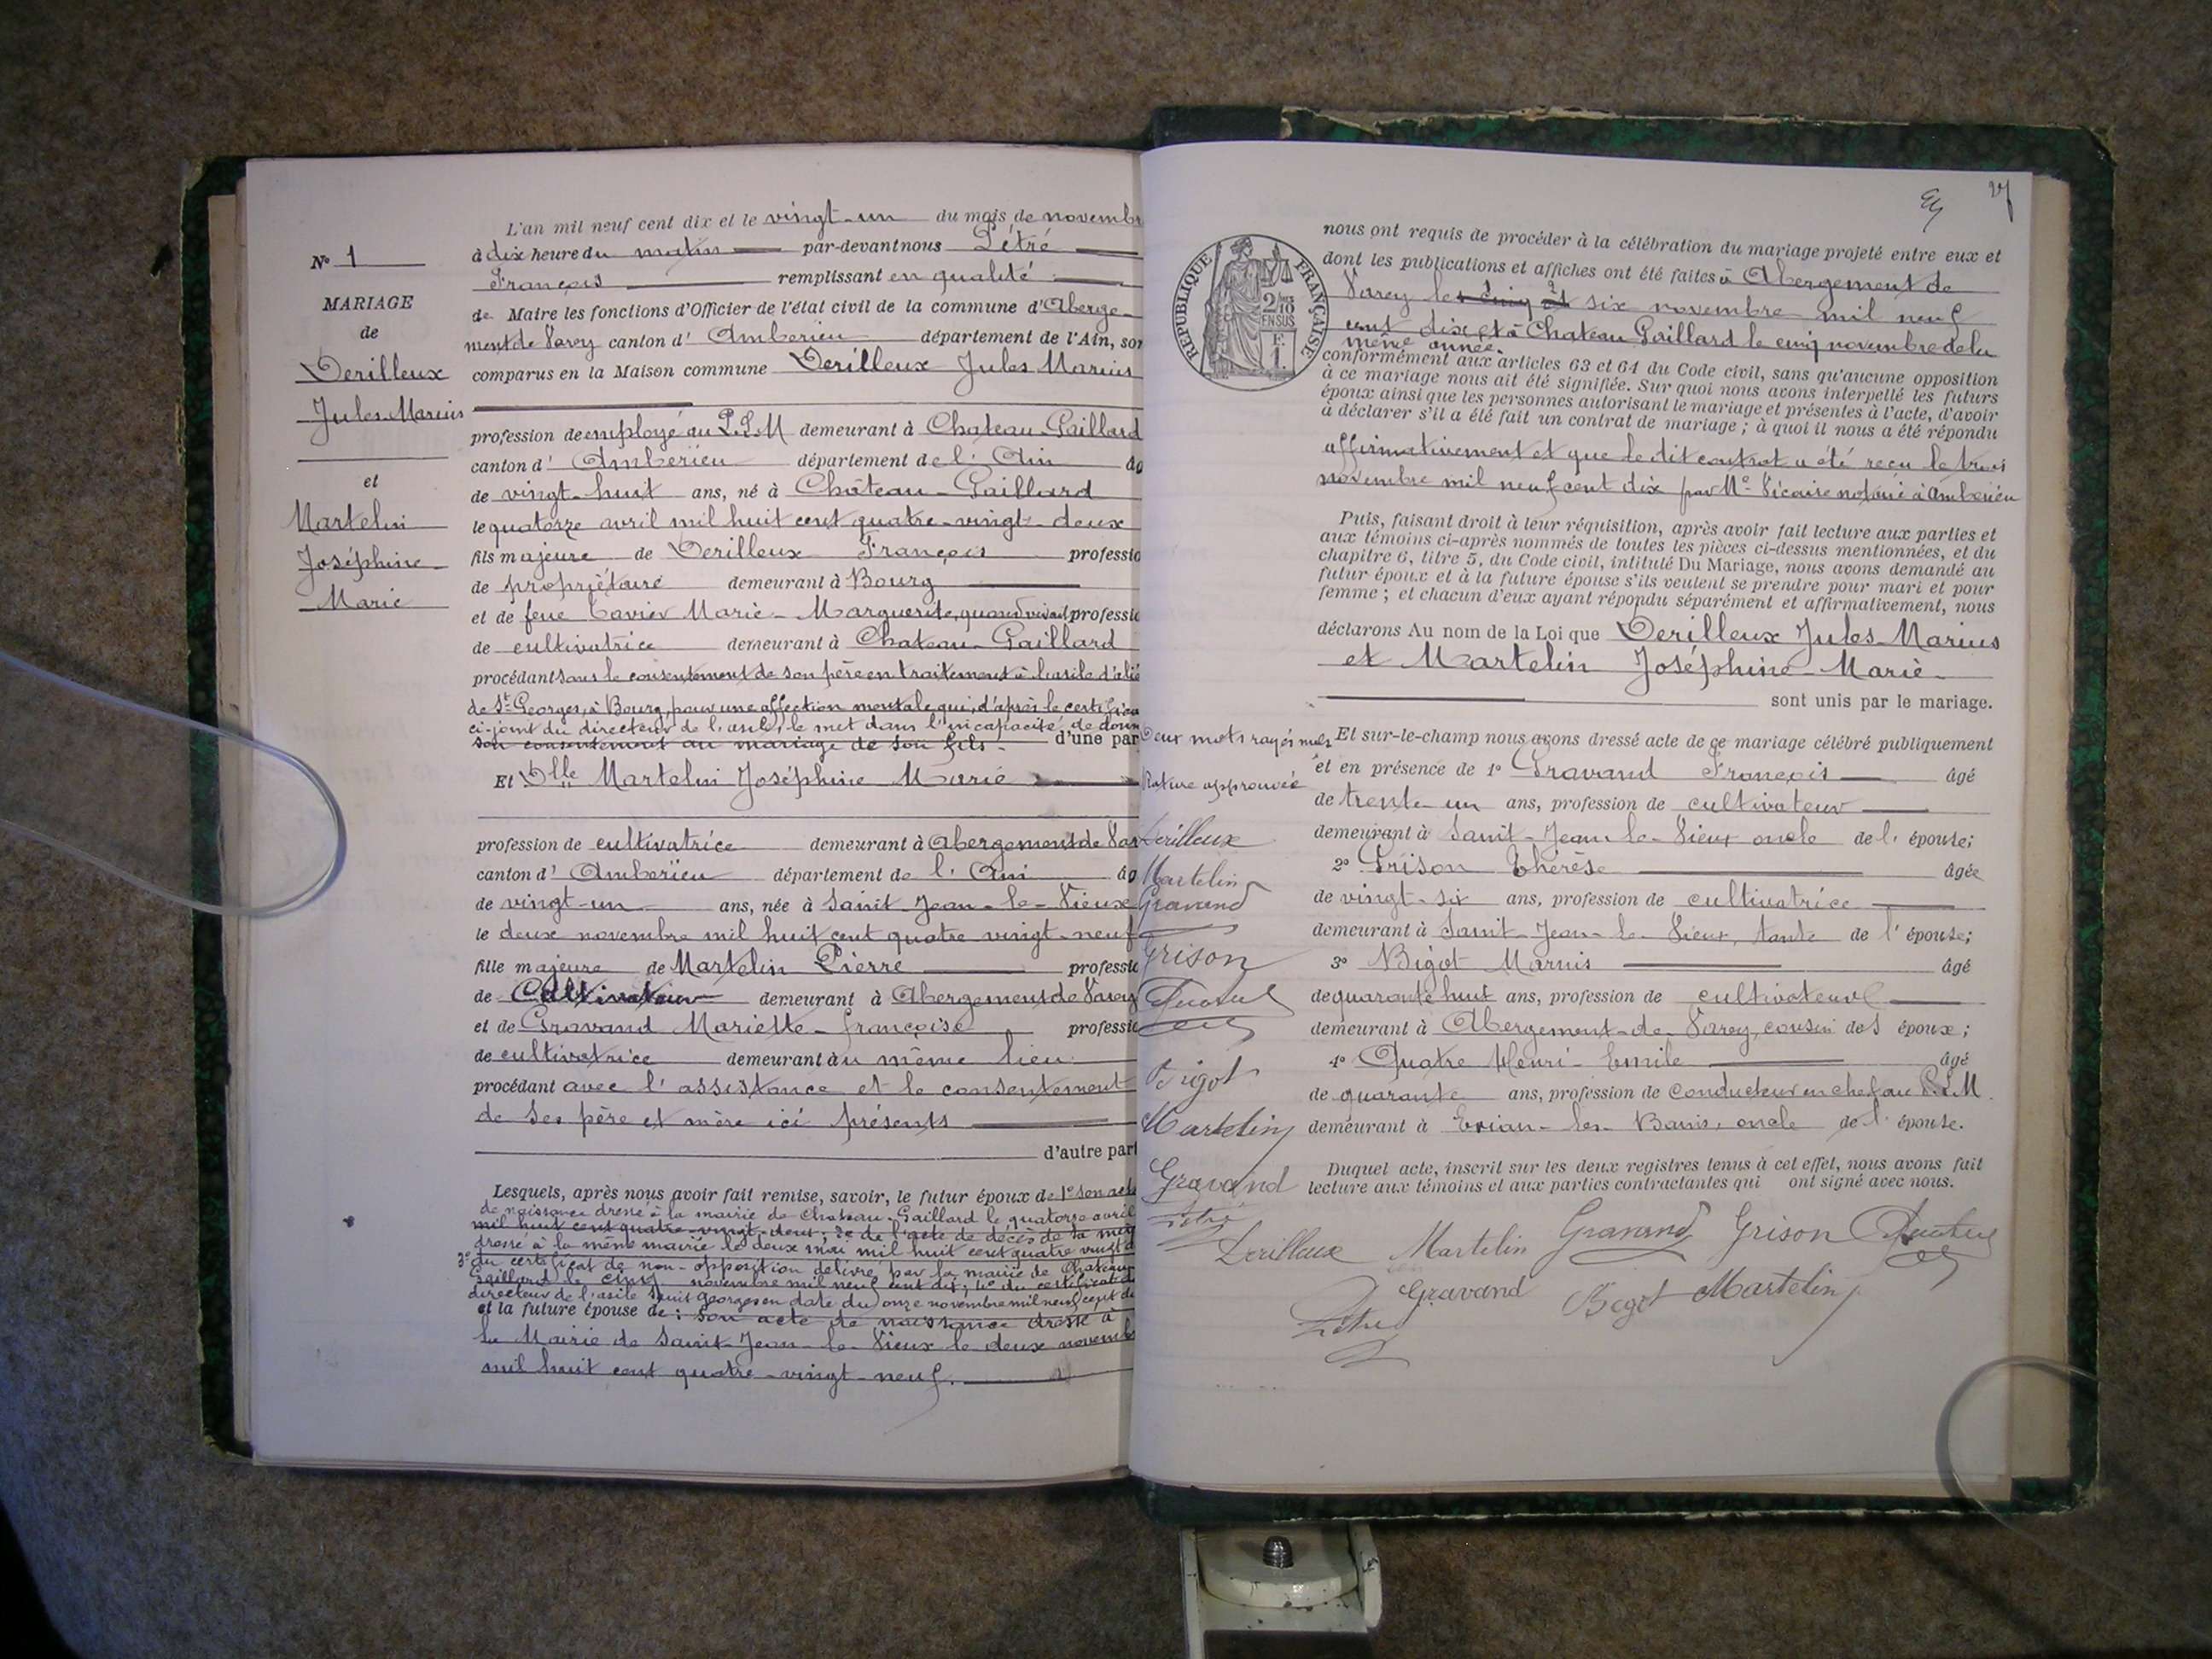 L'an mil neuf cent dix et le vingt-un du mois de novembr
à dix heure du matin par-devant nous Pétré
François remplissant en qualité
de Maire les fonctions d'Officier de l'état civil de la commune d'Aberge-
ment de Varey canton d'Ambérieu département de l'Ain, son
comparus en la Maison commune Derilleux Jules Marius
N° 1
MARIAGE
de
Derilleux
Jules Marius
et
Martelin
Joséphine
Marie
profession de employé au P.L.M demeurant à Chateau-Gaillard
canton d'Ambérieu département de l'Ain âg
de vingt-huit ans, né à Château-Gaillard
le quatorze avril mil huit cent quatre-vingt-deux
fils majeure de Derilleux François professio
de propriétaire demeurant à Bourg
et de feue Cavier Marie-Marguerite, quand vivait professio
de cultivatrice demeurant à Chateau-Gaillard
procédant sans le consentement de son père en traitement à l'asile d'alié
de St Georges, à Bourg, pour une affection mentale qui, d'après le certifica
ci-joint du directeur de l'asile, le met dans l'incapacité de donn
son consentement au mariage de son fils. d'une par
Et Dlle Martelin Joséphine Marie
profession de cultivatrice demeurant à Abergement de Var
canton d'Ambérieu département de l'Ain âg
de vingt-un ans, née à Saint Jean-le-Vieux
le deux novembre mil huit cent quatre vingt-neuf
fille majeure de Martelin Pierre professio
de Cultivateur demeurant à Abergement de Varey
et de Gravand Mariette-Françoise professio
de cultivatrice demeurant au même lieu
procédant avec l'assistance et le consentement
de ses père et mère ici présents
d'autre part
Lesquels, après nous avoir fait remise, savoir, le futur époux de 1° son acte
de naissance dressé à la mairie de Chateau-Gaillard le quatorze avril
mil huit cent quatre-vingt-deux; 2° de l'acte de décès de sa mère
dressé à la même mairie le deux mai mil huit cent quatre vingt d
3° du certificat de non-opposition délivré par la mairie de Chateau-
Gaillard le cinq novembre mil neuf cent dix; 4° du certificat du
directeur de l'asile Saint Georges en date du onze novembre mil neuf cent di
et la future épouse de: son acte de naissance dressé à
la Mairie de Saint-Jean-le-Vieux le deux novemb
mil huit cent quatre-vingt-neuf.
27
RÉPUBLIQUE FRANÇAISE
2/10 EN SUS
F. 1.
nous ont requis de procéder à la célébration du mariage projeté entre eux et
dont les publications et affiches ont été faites à Abergement de
Varey les cinq et six novembre mil neuf
cent dix et à Chateau Gaillard le cinq novembre de la
même année.
conformément aux articles 63 et 64 du Code civil, sans qu'aucune opposition
à ce mariage nous ait été signifiée. Sur quoi nous avons interpellé les futurs
époux ainsi que les personnes autorisant le mariage et présentes à l'acte, d'avoir
à déclarer s'il a été fait un contrat de mariage; à quoi il nous a été répondu
affirmativement et que le dit contrat a été reçu le trois
novembre mil neuf cent dix par Me Vicaire notaire à Ambérieu
Puis, faisant droit à leur réquisition, après avoir fait lecture aux parties et
aux témoins ci-après nommés de toutes les pièces ci-dessus mentionnées, et du
chapitre 6, titre 5, du Code civil, intitulé Du Mariage, nous avons demandé au
futur époux et à la future épouse s'ils veulent se prendre pour mari et pour
femme; et chacun d'eux ayant répondu séparément et affirmativement, nous
déclarons Au nom de la Loi que Derilleux Jules-Marius
et Martelin Joséphine-Marie
sont unis par le mariage.
Deux mots rayés nuls
Rature approuvée
Derilleux
Martelin
Gravand
Grison
Bigot
Martelin
Gravand
Pétré
Et sur-le-champ nous avons dressé acte de ce mariage célébré publiquement
et en présence de 1° Gravand François âgé
de trente-un ans, profession de cultivateur
demeurant à Saint-Jean-le-Vieux oncle de l'épouse;
2° Grison Thérèse âgée
de vingt-six ans, profession de cultivatrice
demeurant à Saint-Jean-le-Vieux, tante de l'épouse;
3° Bigot Marius âgé
de quarante huit ans, profession de cultivateur
demeurant à Abergement-de-Varey, cousin des époux;
4° Quatre Henri-Emile âgé
de quarante ans, profession de conducteur en chef au P.L.M.
demeurant à Evian-les-Bains, oncle de l'épouse.
Duquel acte, inscrit sur les deux registres tenus à cet effet, nous avons fait
lecture aux témoins et aux parties contractantes qui ont signé avec nous.
Derilleux Martelin Gravand Grison
Gravand Bigot Martelin
Pétré